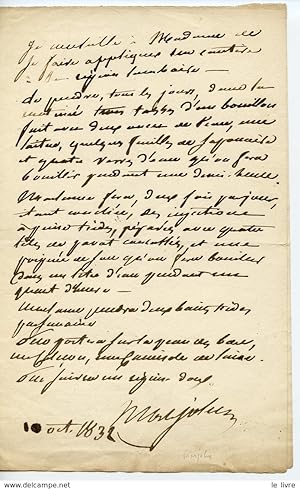 Je conseille à Madame de
se faire appliquer un cautère
à la région lombaire —
de prendre, tous les jours, dans la
matinée trois tasses d'un bouillon
fait avec deux onces de veau, une
laitue, quelques feuilles de saponaire
et quatre verres d'eau qu'on fera
bouillir pendant une demi-heure.
Madame fera, deux fois par jour,
des injections
tièdes, préparées avec quatre
têtes de pavot concassées, et une
poignée de son qu'on fera bouillir
dans un litre d'eau pendant un
quart d'heure —
Madame prendra deux bains tièdes
par semaine
Elle portera sur la peau des bas,
un caleçon, une camisole de laine.
Elle suivra un régime doux
10 oct. 1832 Marjolin
marjolin
© le livre